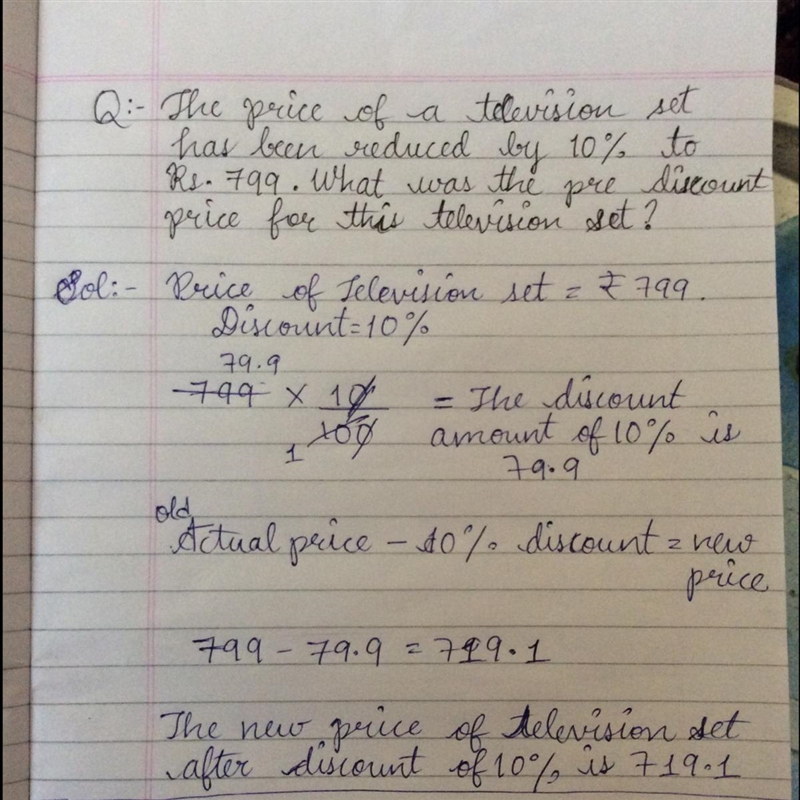 Q:- The price of a television set
has been reduced by 10% to
Rs. 799. What was the pre discount
price for this television set?
Sol:- Price of Television set = ₹ 799.
Discount = 10%
79.9
799 × 10/100 = The discount
1 amount of 10% is
79.9
old
Actual price - 10% discount = new
price
799 - 79.9 = 719.1
The new price of television set
after discount of 10% is 719.1